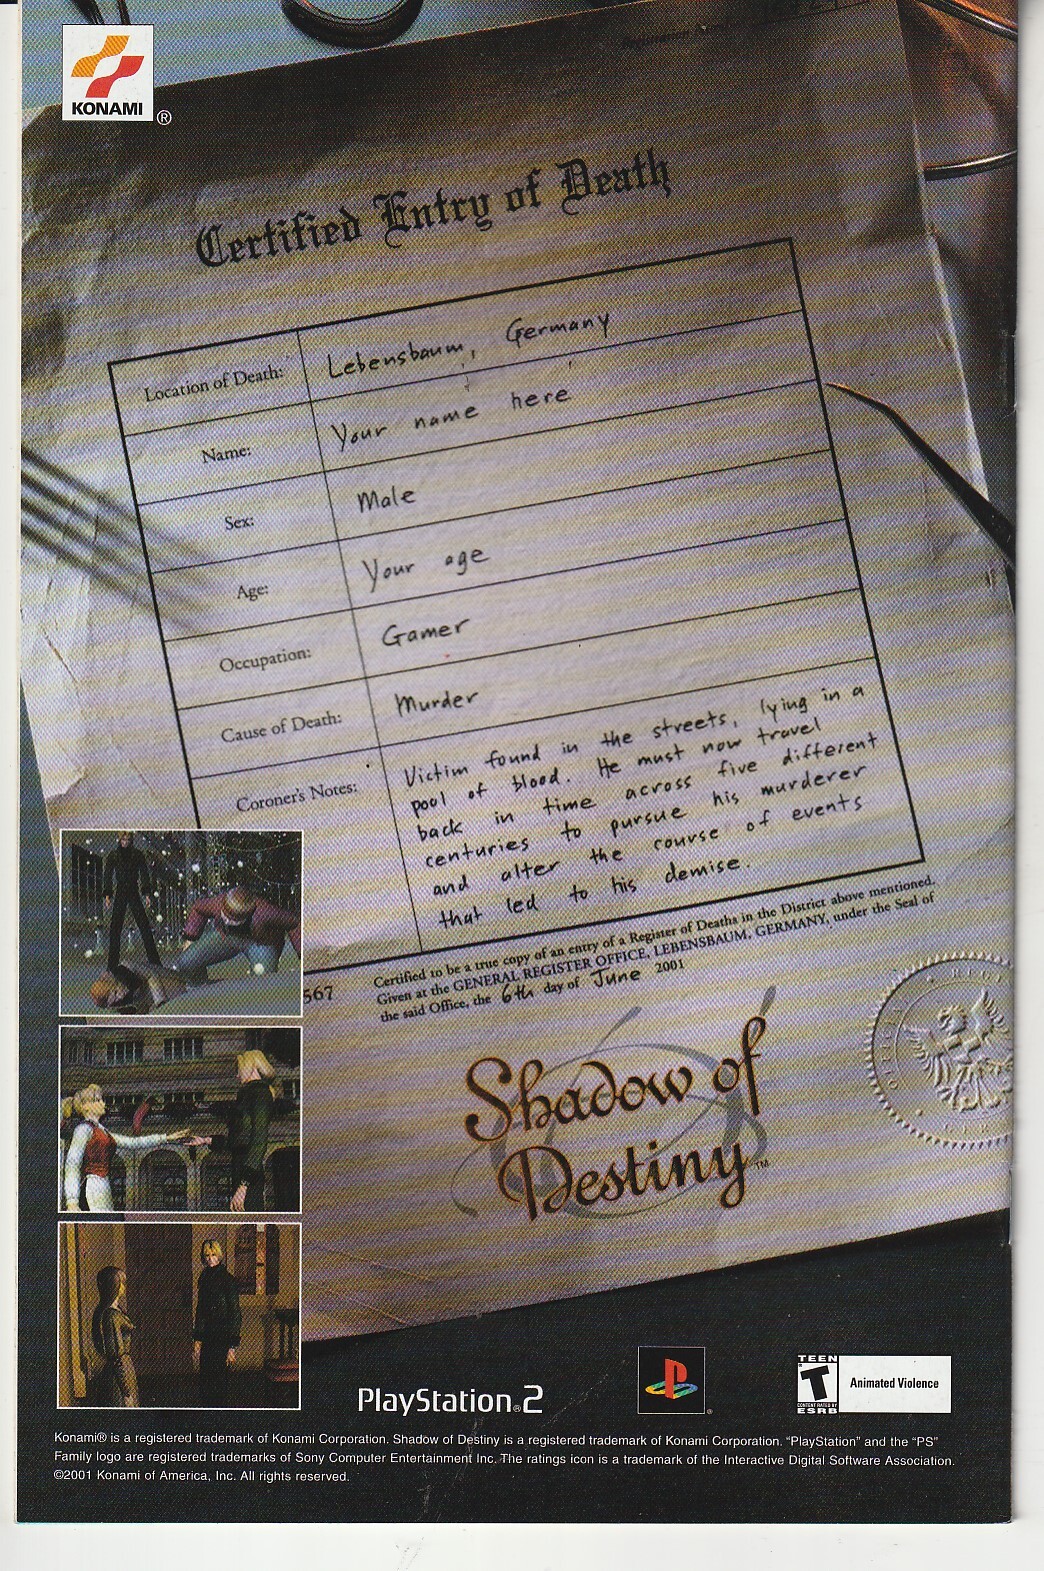 KONAMI
®
Certified Entry of Death
Location of Death: Lebensbaum, Germany
Name: Your name here
Sex: Male
Age: Your age
Occupation: Gamer
Cause of Death: Murder
Coroner's Notes: Victim found in the streets, lying in a
pool of blood. He must now travel
back in time across five different
centuries to pursue his murderer
and alter the course of events
that led to his demise.
567
Certified to be a true copy of an entry of a Register of Deaths in the District above mentioned.
Given at the GENERAL REGISTER OFFICE, LEBENSBAUM, GERMANY, under the Seal of
the said Office, the 6th day of June 2001
Shadow of
Destiny™
PlayStation®2
TEEN
T
CONTENT RATED BY
ESRB
Animated Violence
Konami® is a registered trademark of Konami Corporation. Shadow of Destiny is a registered trademark of Konami Corporation. “PlayStation” and the “PS”
Family logo are registered trademarks of Sony Computer Entertainment Inc. The ratings icon is a trademark of the Interactive Digital Software Association.
©2001 Konami of America, Inc. All rights reserved.